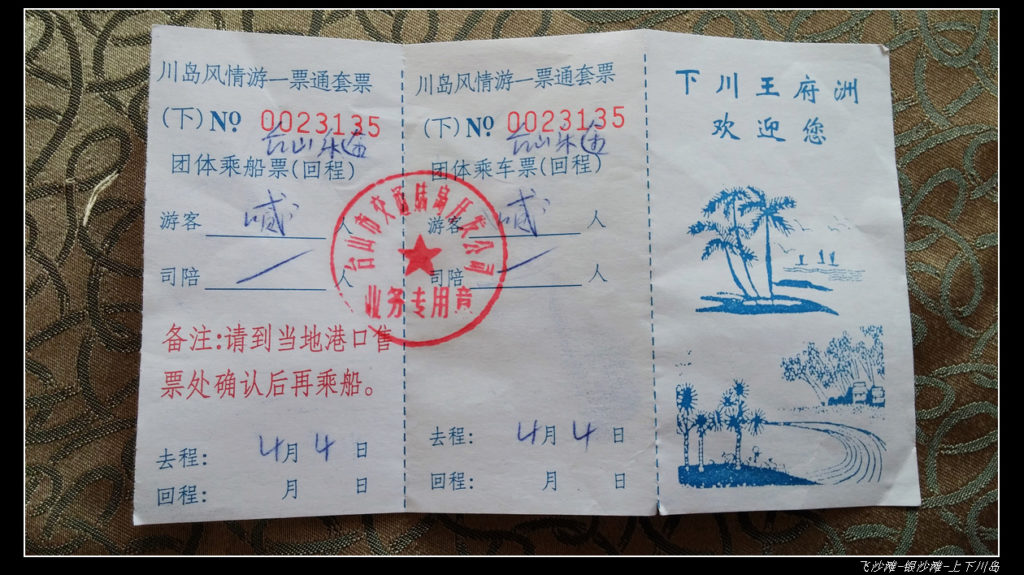 川岛风情游一票通套票
(下) Nº 0023135
台山乐逍
团体乘船票(回程)
游客 人
司陪 / 人
备注:请到当地港口售
票处确认后再乘船。
去程: 4月4日
回程: 月 日
川岛风情游一票通套票
(下) Nº 0023135
台山乐逍
团体乘车票(回程)
游客 人
司陪 / 人
去程: 4月4日
回程: 月 日
台山市交通旅游开发公司
业务专用章
下川王府洲
欢迎您
飞沙滩-银沙滩-上下川岛